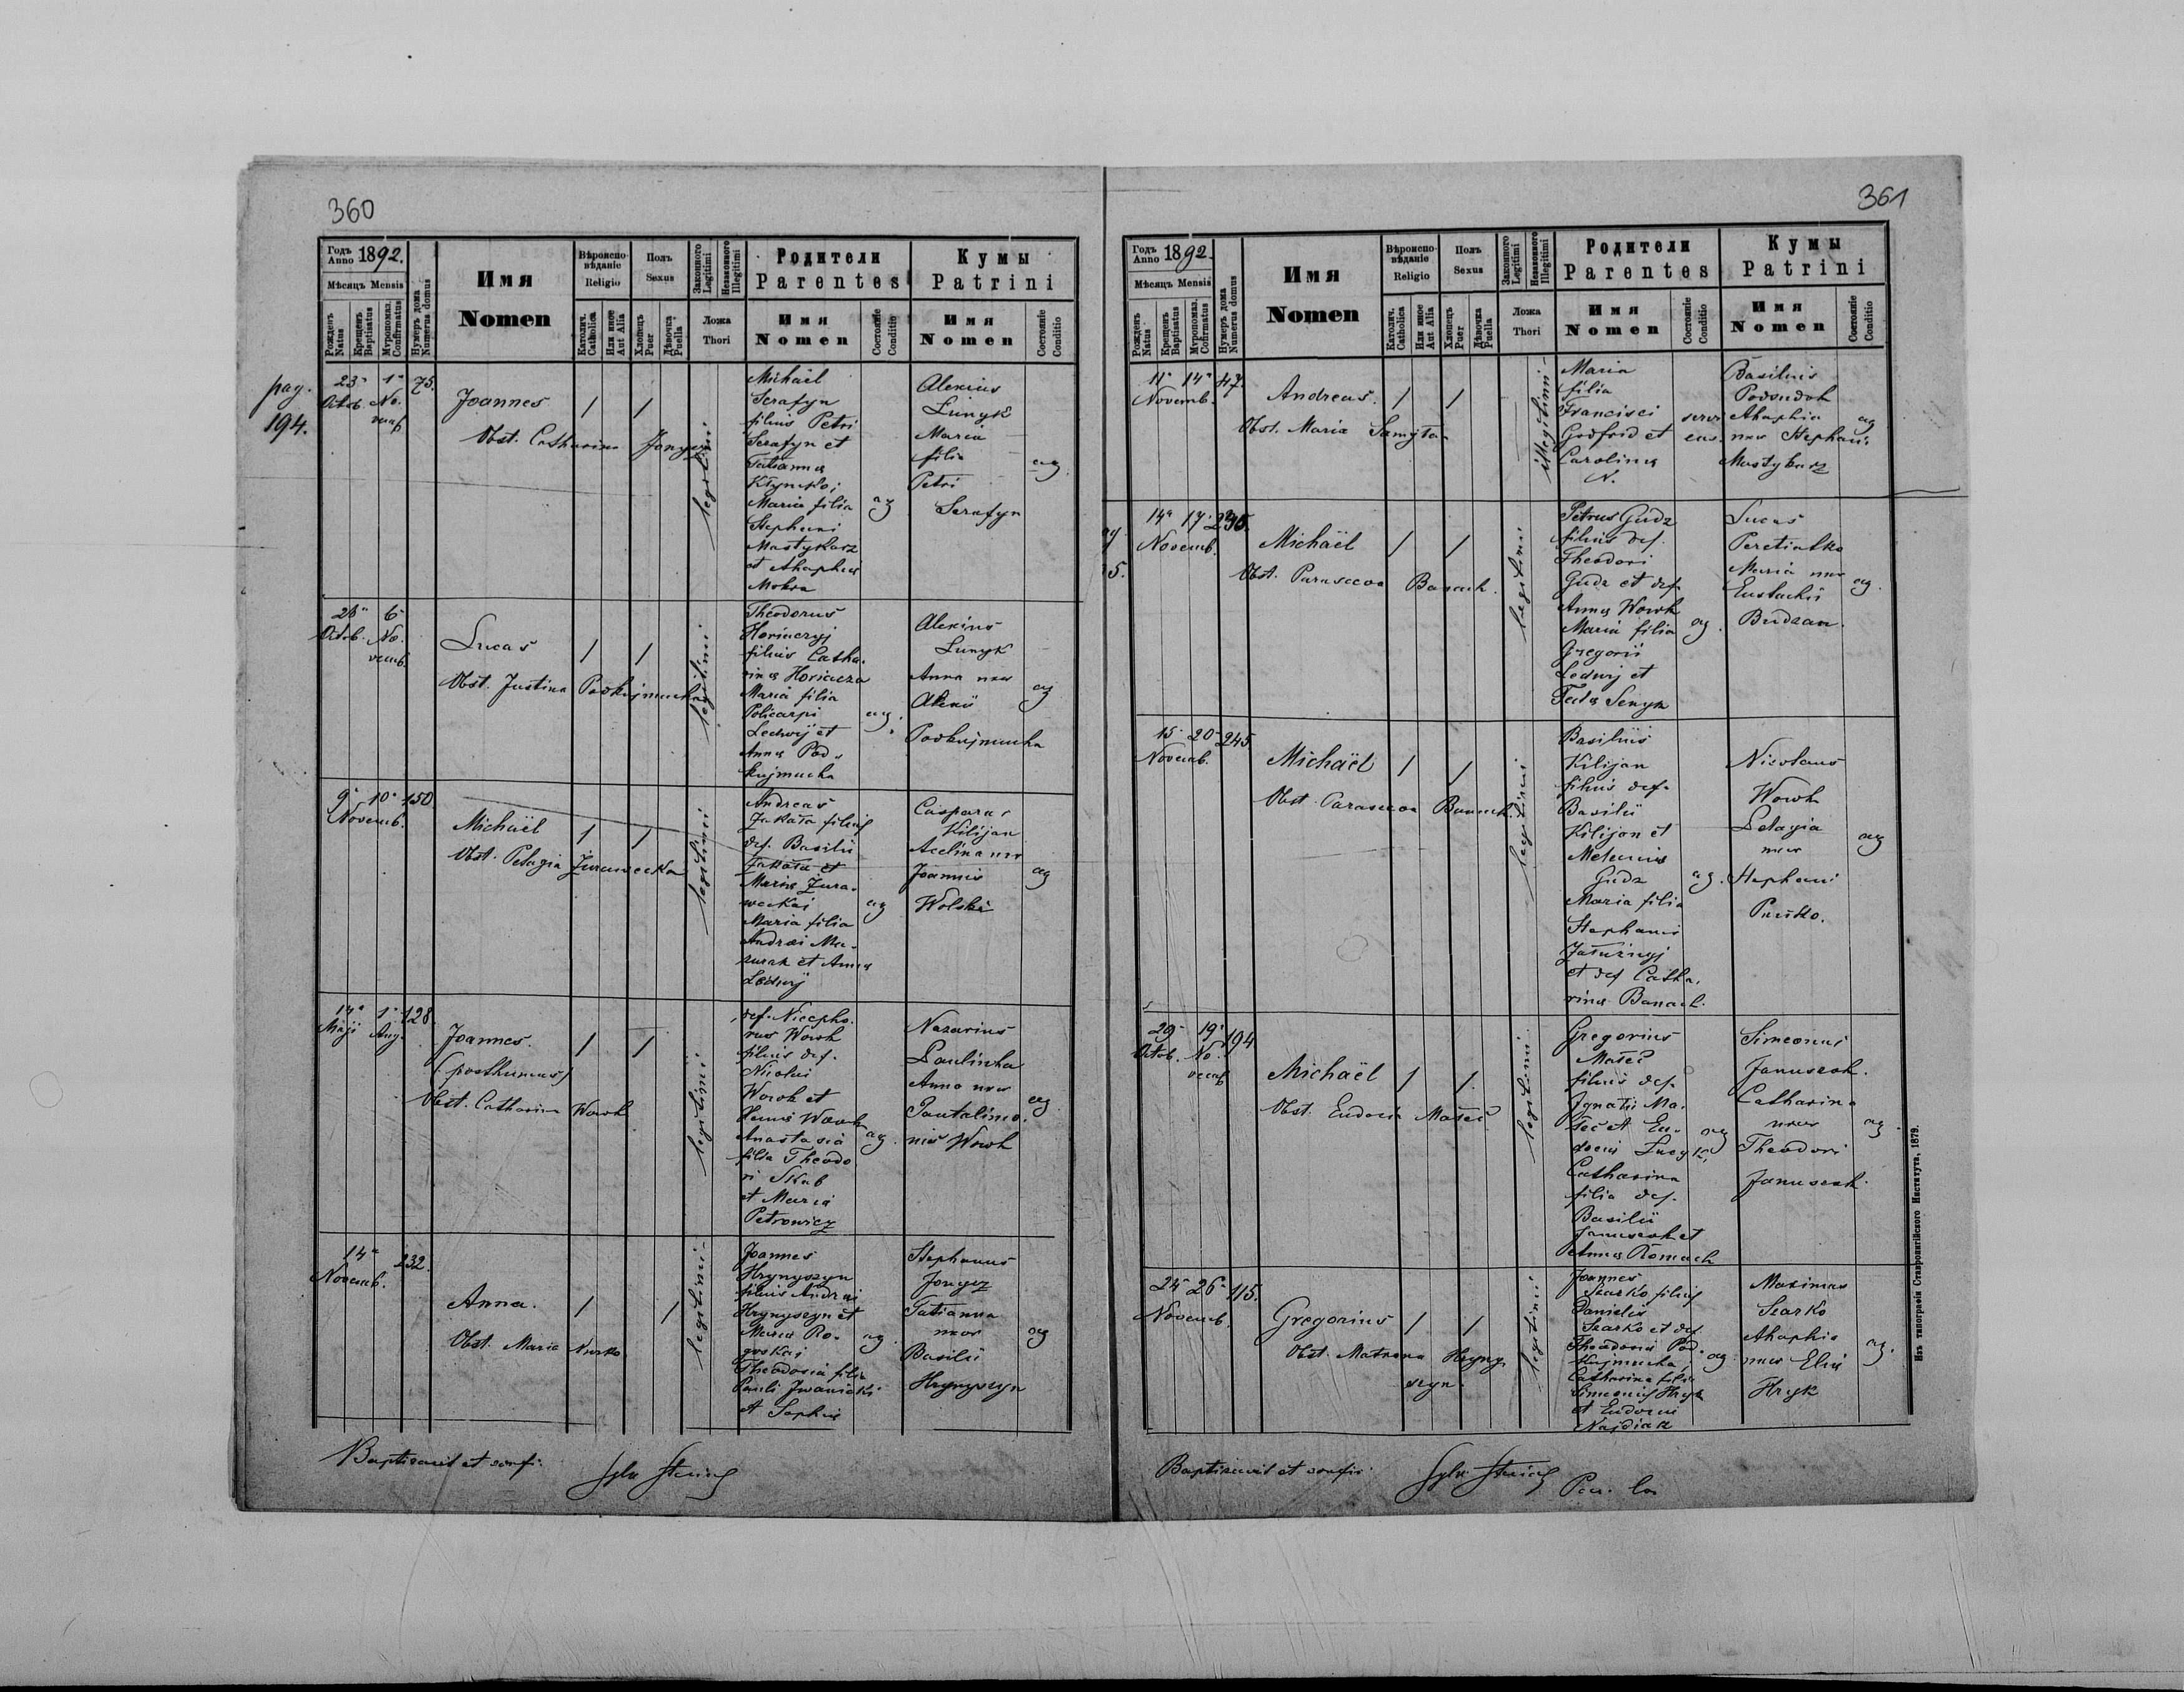 360
Годъ Anno 1892.
Мѣсяцъ Mensis
Рожденъ Natus
Крещенъ Baptisatus
Мѵропомаз. Confirmatus
Нумеръ дома Numerus domus
Имя
Nomen
Вѣроисповѣданіе
Religio
Католич. Catholica
Или иное Aut Alia
Полъ
Sexus
Хлопецъ Puer
Дѣвочка Puella
Законного Legitimi
Незаконного Illegitimi
Ложа
Thori
Родители
Parentes
Имя
Nomen
Состояніе Conditio
Кумы
Patrini
Имя
Nomen
Состояніе Conditio
pag.
194.
23a 1a 75.
Octob. No-
vemb
Joannes / /
Obst. Catharina
legitimi
Michaël
Serafyn
filius Petri
Serafyn et
Tatianna
Kłymko;
Maria filia
Stephani
Mastykarz
et Ahaphia
Mokra
ag
Alexius
Łunyk
Maria
filia
Petri
Serafyn
ag
28a 6a
Octob. No-
vemb.
Lucas / /
Obst. Justina Podkujmucha
legitimi
Theodorus
Horiaczyj
filius Catha-
rina Horiacza
Maria filia
Policarpi
Ledwij et
Anna Pod-
kujmucha
ag.
Alexius
Łunyk
Anna uxor
Alexii
Podkujmucha
ag
9a 10a 150.
Novemb.
Michaël / /
Obst. Pelagia Żurawecka
legitimi
Andreas
Żakała filius
def. Basilii
Żakała et
Maria Żura-
weckai
Maria filia
Andrei Ma-
zurak et Anna
Ledwij
ag
Casparus
Kilijan
Acelina uxor
Joannis
Wolski
ag
14a 1a 128.
Maji Aug.
Joannes. / /
(posthumus)
Obst. Catharina Wowk
legitimi
def. Nicepho-
rus Wowk
filius def.
Nicolai
Wowk et
Wowk
Anastasia
filia Theodo
ri Skab
et Maria
Petrowicz
ag.
Nazarius
Paulinka
Anna uxor
Pantalimo-
nis Wowk
ag
14a 232.
Novemb.
Anna. / /
Obst. Maria Nurko
legitimi
Joannes
Hrynyszyn
filius Andrei
Hrynyszyn et
Maria Ro-
goskai
Theodosia filia
Pauli Iwanicki
et Sophia
ag.
Stephanus
Tatianna
uxor
Basilii
Hrynyszyn
ag
Baptisavit et confi.
361
Годъ Anno 1892.
Мѣсяцъ Mensis
Рожденъ Natus
Крещенъ Baptisatus
Мѵропомаз. Confirmatus
Нумеръ дома Numerus domus
Имя
Nomen
Вѣроисповѣданіе
Religio
Католич. Catholica
Или иное Aut Alia
Полъ
Sexus
Хлопецъ Puer
Дѣвочка Puella
Законного Legitimi
Незаконного Illegitimi
Ложа
Thori
Родители
Parentes
Имя
Nomen
Состояніе Conditio
Кумы
Patrini
Имя
Nomen
Состояніе Conditio
11a 14a 47.
Novemb.
Andreas. / /
Obst. Maria Samyta
illegitimi
Maria
filia
Francisci
Godfrid et
Carolina
N.
Basilius
Ahaphia
uxor Stephani
Mastykarz
ag
14a 17a
Novemb.
Michaël / /
Obst. Parasceva Banach.
legitimi
Petrus Gudz
filius def.
Theodori
Gudz et def.
Anna Wowk
Maria filia
Gregorii
Ledwij et
Tecla Senyk
ag.
Lucas
Peretiatko
Maria uxor
Eustachii
Budzan.
ag.
15a 20a 245.
Novemb.
Michaël / /
Obst. Parasceva Banach.
legitimi
Basilius
Kilijan
filius def.
Basilii
Kilijan et
Melania
Gudz
Maria filia
Stephani
et def. Catha-
rina Banach.
ag.
Nicolaus
Wowk
Pelagia
uxor
Stephani
ag
29a 19a 194
Octob. No-
vemb
Michaël / /
Obst. Eudocia Matec
legitimi
Gregorius
Matec
filius def.
Ignatii Ma-
tec et Eu-
docia Łucyk,
Catharina
filia def.
Basilii
Januszok et
Anna Romach
ag
Simeonus
Januszok.
Catharina
uxor
Theodori
Januszok.
ag.
24a 26a 115.
Novemb.
Gregorius / /
Obst. Matrona Hryny-
szyn.
legitimi
Joannes
Szarko filius
Danielis
Szarko et def.
Theodosia Pod-
kujmucha;
Catharina filia
Simeonis Hryk
et Eudocia
Najdiak
ag
Maximus
Szarko
Ahaphia
uxor Elia
Hryk
ag.
Baptisavit et confir.
Изъ типографіи Ставропигійского Института, 1879.